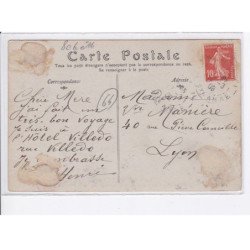 Carte Postale
Tous les pays étrangers n'acceptent pas la correspondance au recto.
Se renseigner à la poste
Correspondance Adresse
Chère Mère 64 Madame
J'ai fait un Vve Manière
très bon voyage 40 rue Pierre Corneille
Je suis à Lyon
l'Hôtel Villedo
rue Villedo
Je t'embrasse
Henri
10